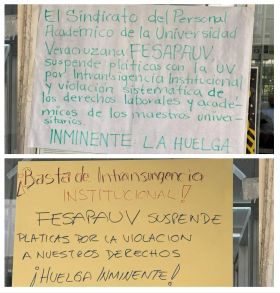 El Sindicato del Personal
Académico de la Universidad
Veracruzana FESAPAUV
suspende pláticas con la UV
por Intransigencia Institucional
y violación sistemática de
los derechos laborales y acadé-
micos de los maestros univer-
sitarios.
INMINENTE LA HUELGA
¡Basta de Intransigencia
INSTITUCIONAL!
FESAPAUV SUSPENDE
PLATICAS POR LA VIOLACION
A NUESTROS DERECHOS
¡HUELGA INMINENTE!